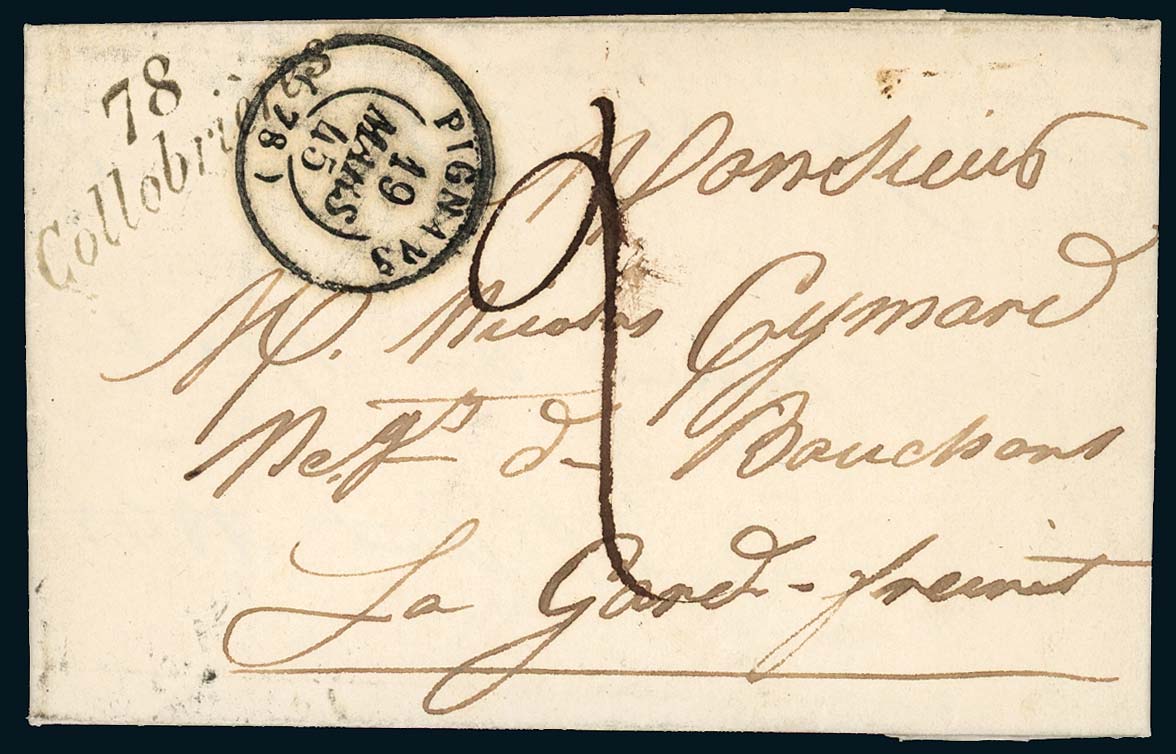 78
Collobriè
PIGNANS
19
MARS
45
(78)
Monsieur
M. Nicolas Eymard
Negt. de Bouchons
La Gard-freinet